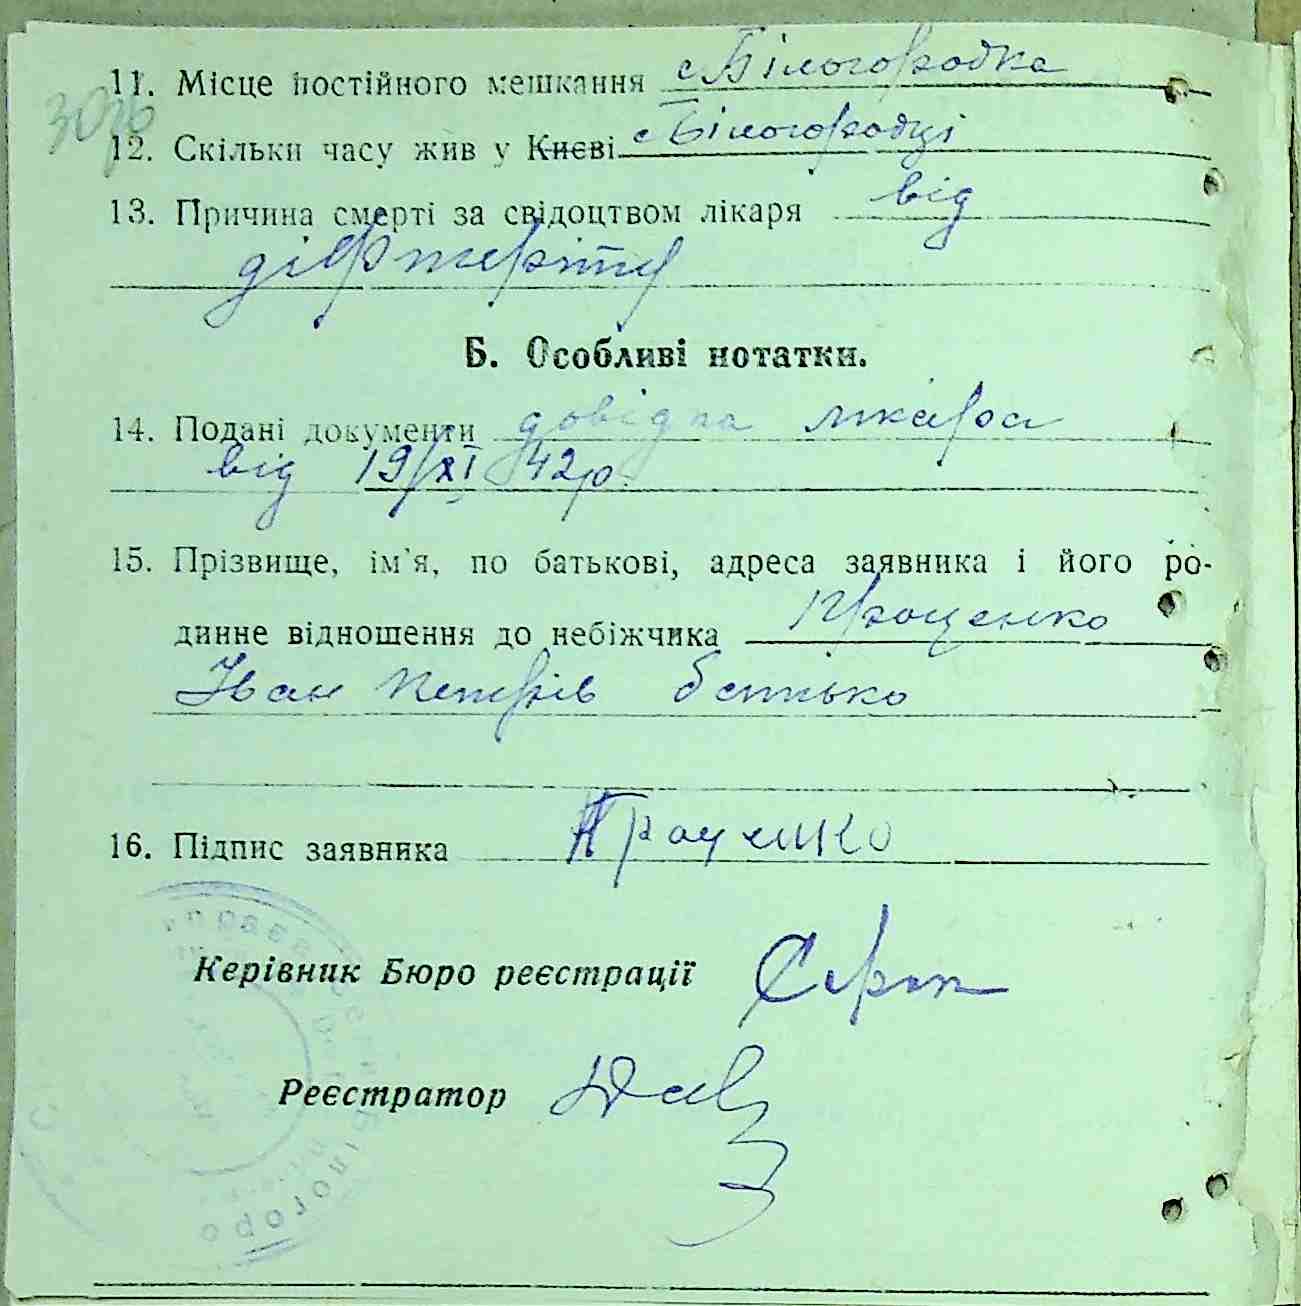 11. Місце постійного мешкання с Білогородка
3076
12. Скільки часу жив у Києві с Білогородці
13. Причина смерті за свідоцтвом лікаря від
діфтеріту
Б. Особливі нотатки.
14. Подані документи довідка лікаря
від 19/XI 42р.
15. Прізвище, ім'я, по батькові, адреса заявника і його ро-
динне відношення до небіжчика Проценко
Іван Петрів батько
16. Підпис заявника Проценко
Керівник Бюро реєстрації
Реєстратор